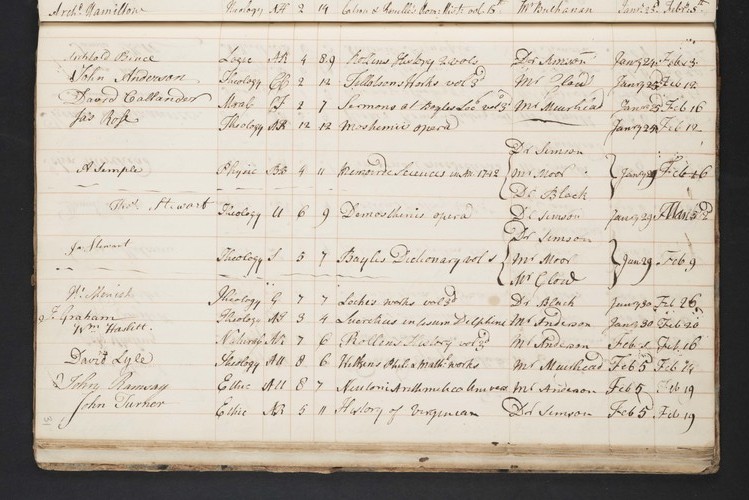 Archd. Hamilton Theology AH 2 14 vol 6th Mr Buchanan Janr 23d Febr 5th
Archbold Bruce Logic AR 4 8.9 Rolins History 2 vols Dr Simson Janry 24 Feb 13
John Anderson Theology CC 2 12 Tillotsons Works vol 3d Mr Clow Janry 25 Feb 12
David Callander Moral CF 2 7 Sermons at Boyles Lec vol 3d Mr Muirhead Janry 25 Feb 16
Jas Ross Theology AR 12 12 opera Janry 24 Feb 12
Dr Simson
A Semple Physic BB 4 11 Sciences in An. 1742 Mr Moor Janry 29 Feb 16
Dr Black
Thos Stewart Theology U 6 9 Demosthenis opera Dr Simson Janry 29 Mar 2d
Dr Simson
Ja Stewart Theology S 3 7 Bayles Dictionary vol 1 Mr Moor Jan 29 Feb 9
Mr Clow
Theology G 7 7 Lockes works vol 3d Dr Black Janry 30 Feb 26
J. Graham Theology AR 3 4 Lucretius in usum Delphini Mr Anderson Janry 30 Feb 20
Wm Hazlitt Natural AR 7 6 Rollins History vol 3d Mr Anderson Feb 1 Feb 16
David Lyle Theology AU 8 6 Wilkens Phil & Math works Mr Muirhead Feb 5 Feb 14
John Ramsay Ethic AU 8 7 Newtoni Arithmetica Univer Mr Anderson Feb 5 Feb 19
John Turner Ethic AR 5 11 History of Virginian Dr Simson Feb 5 Feb 19